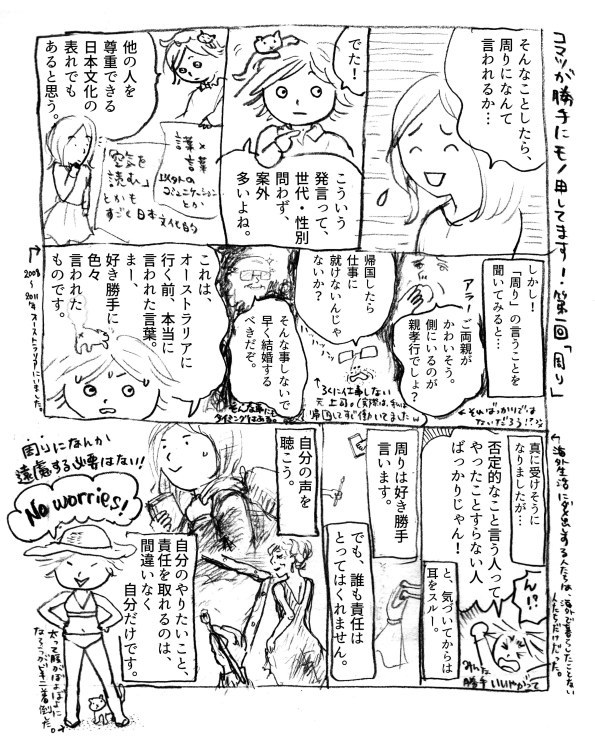 コマツが勝手にモノ申してます！第一回「周り」
そんなことしたら、
周りになんて
言われるか…
でた！
こういう
発言って、
世代・性別
問わず、
案外
多いよね。
他の人を
尊重できる
日本文化の
表れでも
あると思う。
謙×
言葉
以外の
コミュニケーション
とか
「空気を
読む」
とかも
すごく日本
文化的
しかし！
「周り」の言うことを
聞いてみると…
アラー
ご両親が
かわいそう。
側にいるのが
親孝行でしょ？
←そればっかりでは
ないだろう！？
帰国したら
仕事に
就けないんじゃ
ないか？
↑ろくに仕事しない
元上司。
帰国してすぐ働いてました
そんな事しないで
早く結婚する
べきだぞ。
タイミングはある。
これは、
オーストラリアに
行く前、本当に
言われた言葉。
まー、
好き勝手に
色々
言われた
ものです。
2008〜
2011年オーストラリアにいました。
真に受けそうに
なりましたが…
否定的なこと言う人って
やったことすらない人
ばっかりじゃん！
ん！？
みんな
勝手いいやがって
と、気づいてからは
耳をスルー。
海外生活にダメ出しする人たちは、海外で暮らしたことない
人たちだけだった。
周りは好き勝手
言います。
でも、誰も責任は
とってはくれません。
自分の声を
聴こう。
自分のやりたいこと、
責任を取れるのは、
間違いなく
自分だけです。
周りになんか
遠慮する必要はない！
No worries!
太って腹がぽよぽよに
なろうがビキニ着倒した。